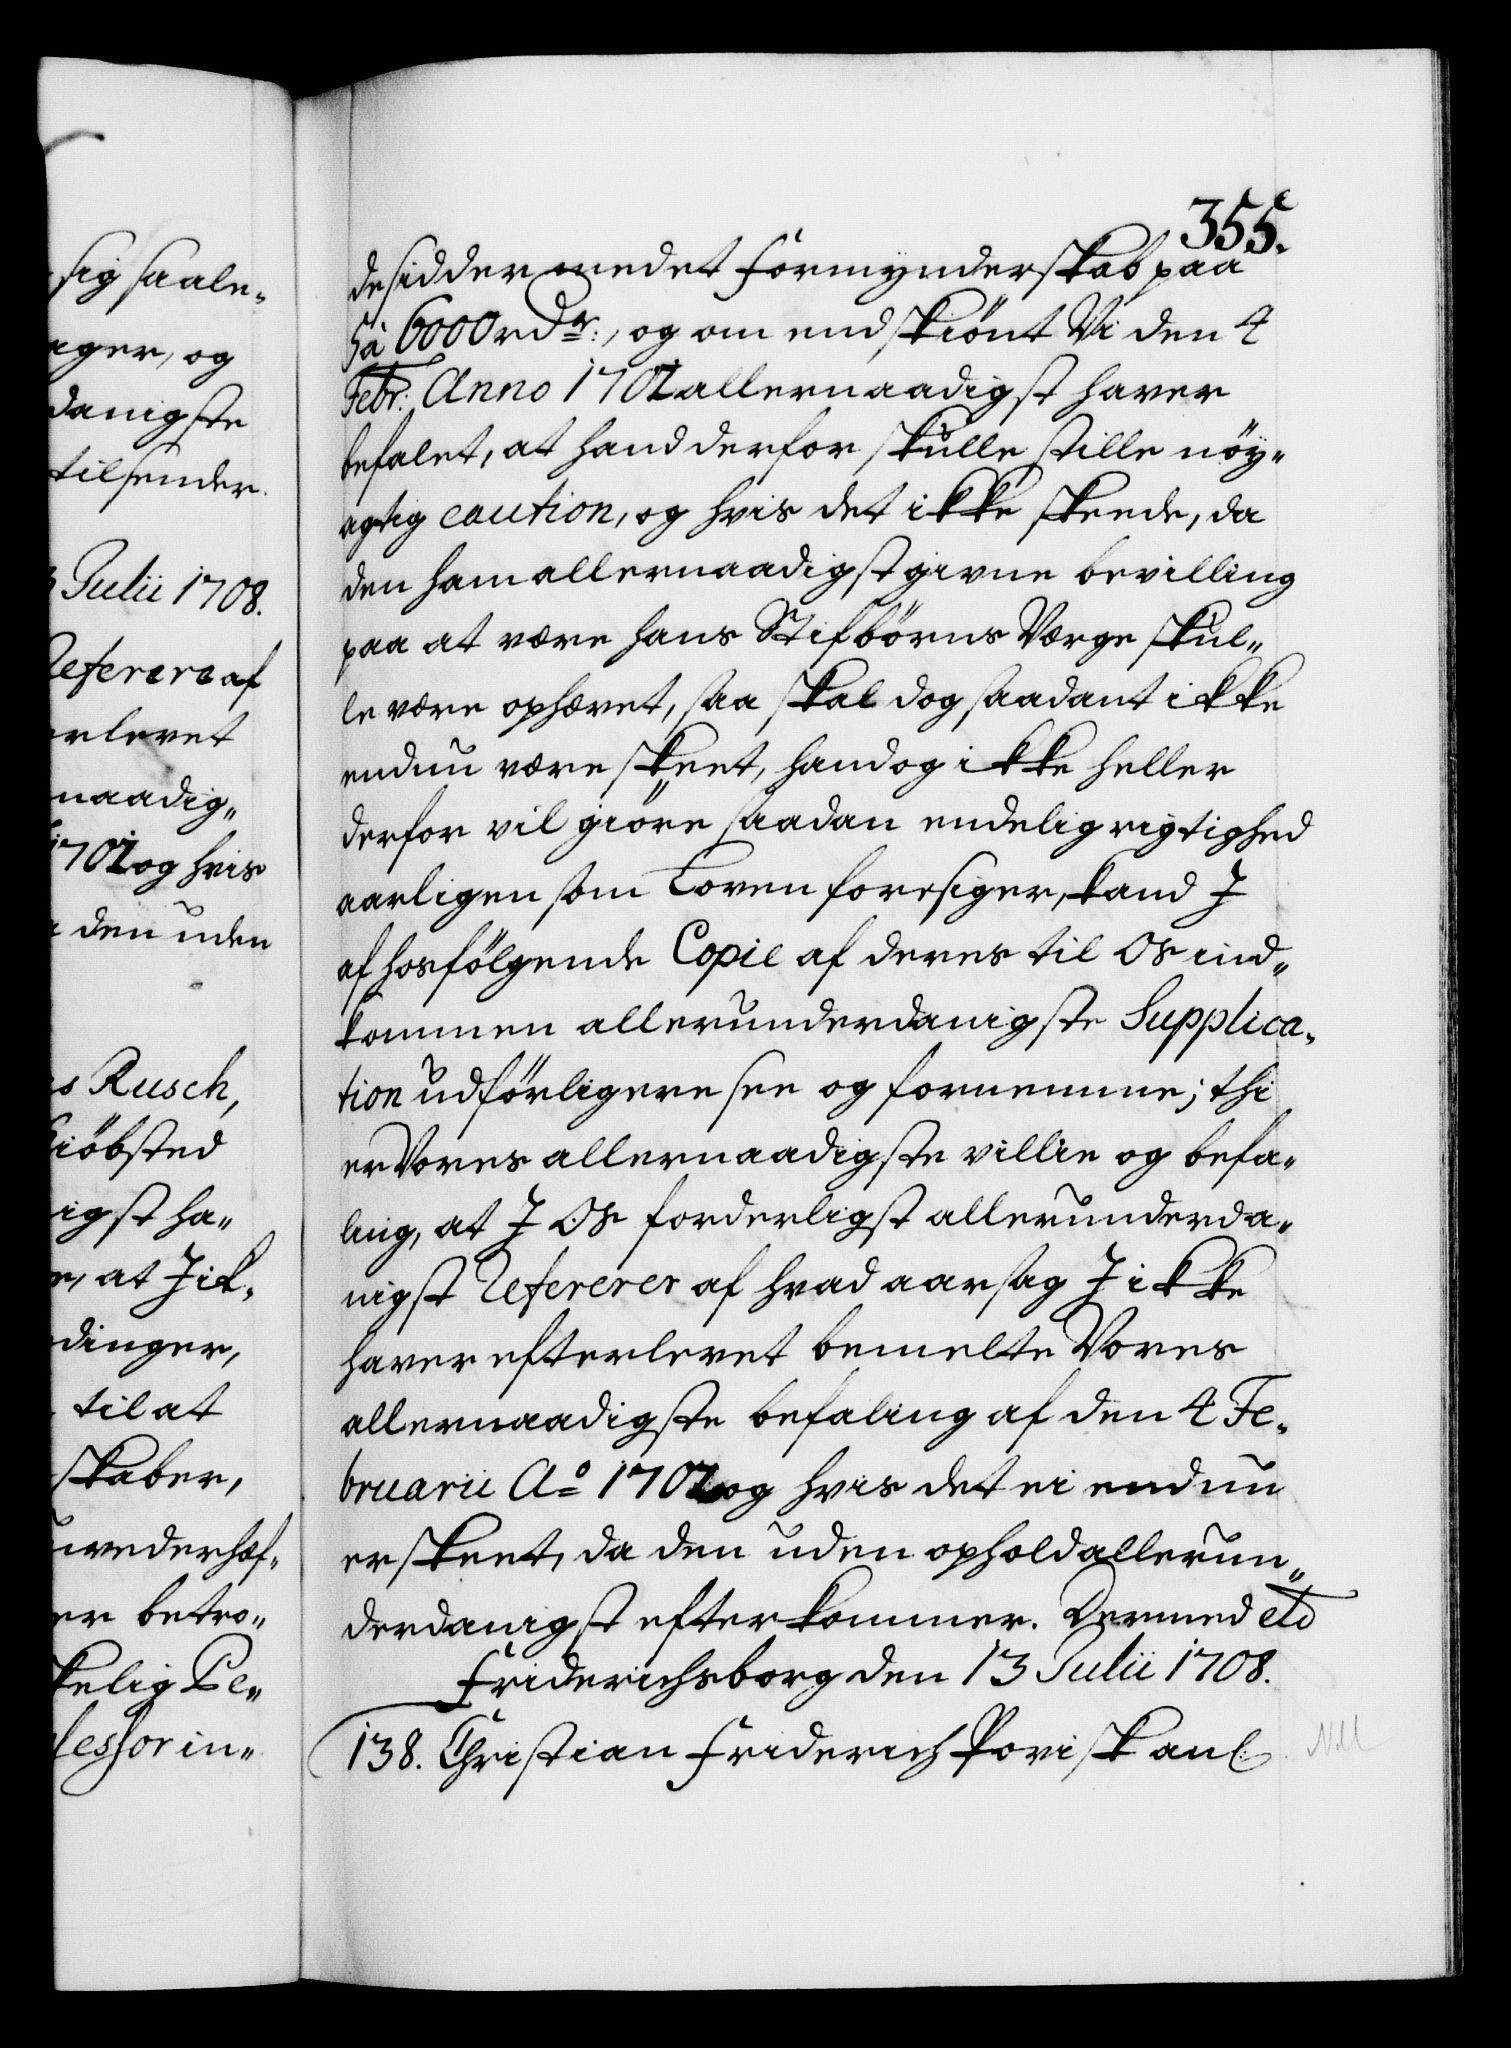 sig saale-
ager, og
danigste
tilsender.
3 Julii 1708.
Referere af
erlevet
naadig-
1701 og hvis
den uden
s Rusch,
kiöbsted
igst ha-
e, at J ik-
dinger,
til at
skaber,
uvederhæf-
er betro-
kelig Pe-
fessor in-
355.
de sidder medet formynderskab paa
6000 rdr:, og om endskiönt Vi den 4
Febr: Anno 1701 allernaadigst haver
befalet, at hand derfor skulle stille nöy-
agtig caution, og hvis det ikke skeede, da
den ham allernaadigst givne bevilling
paa at være hans Stifbörns Værge skul-
le være ophævet, saa skal dog saadant ikke
endnu være skeet, hand og ikke heller
derfor vil giöre saadan endelig rigtighed
aarligen som Loven foresiger, kand J
af hosfölgende Copie af deres til Os ind-
kommen allerunderdanigste Supplica-
tion udförligere see og fornemme; thi
er Vores allernaadigste villie og befa-
ling, at J Os forderligst allerunderda-
nigst Referer af hvad aarsag J ikke
haver efterlevet bemelte Vores
allernaadigste befaling af den 4 Fe-
bruarii Ao 1701 og hvis det ei endnu
er skeet, da den uden ophold allerun-
derdanigst efterkommer. Dermed etc
Friderichsborg den 13 Julii 1708.
138. Christian Friderich Povisk anl: